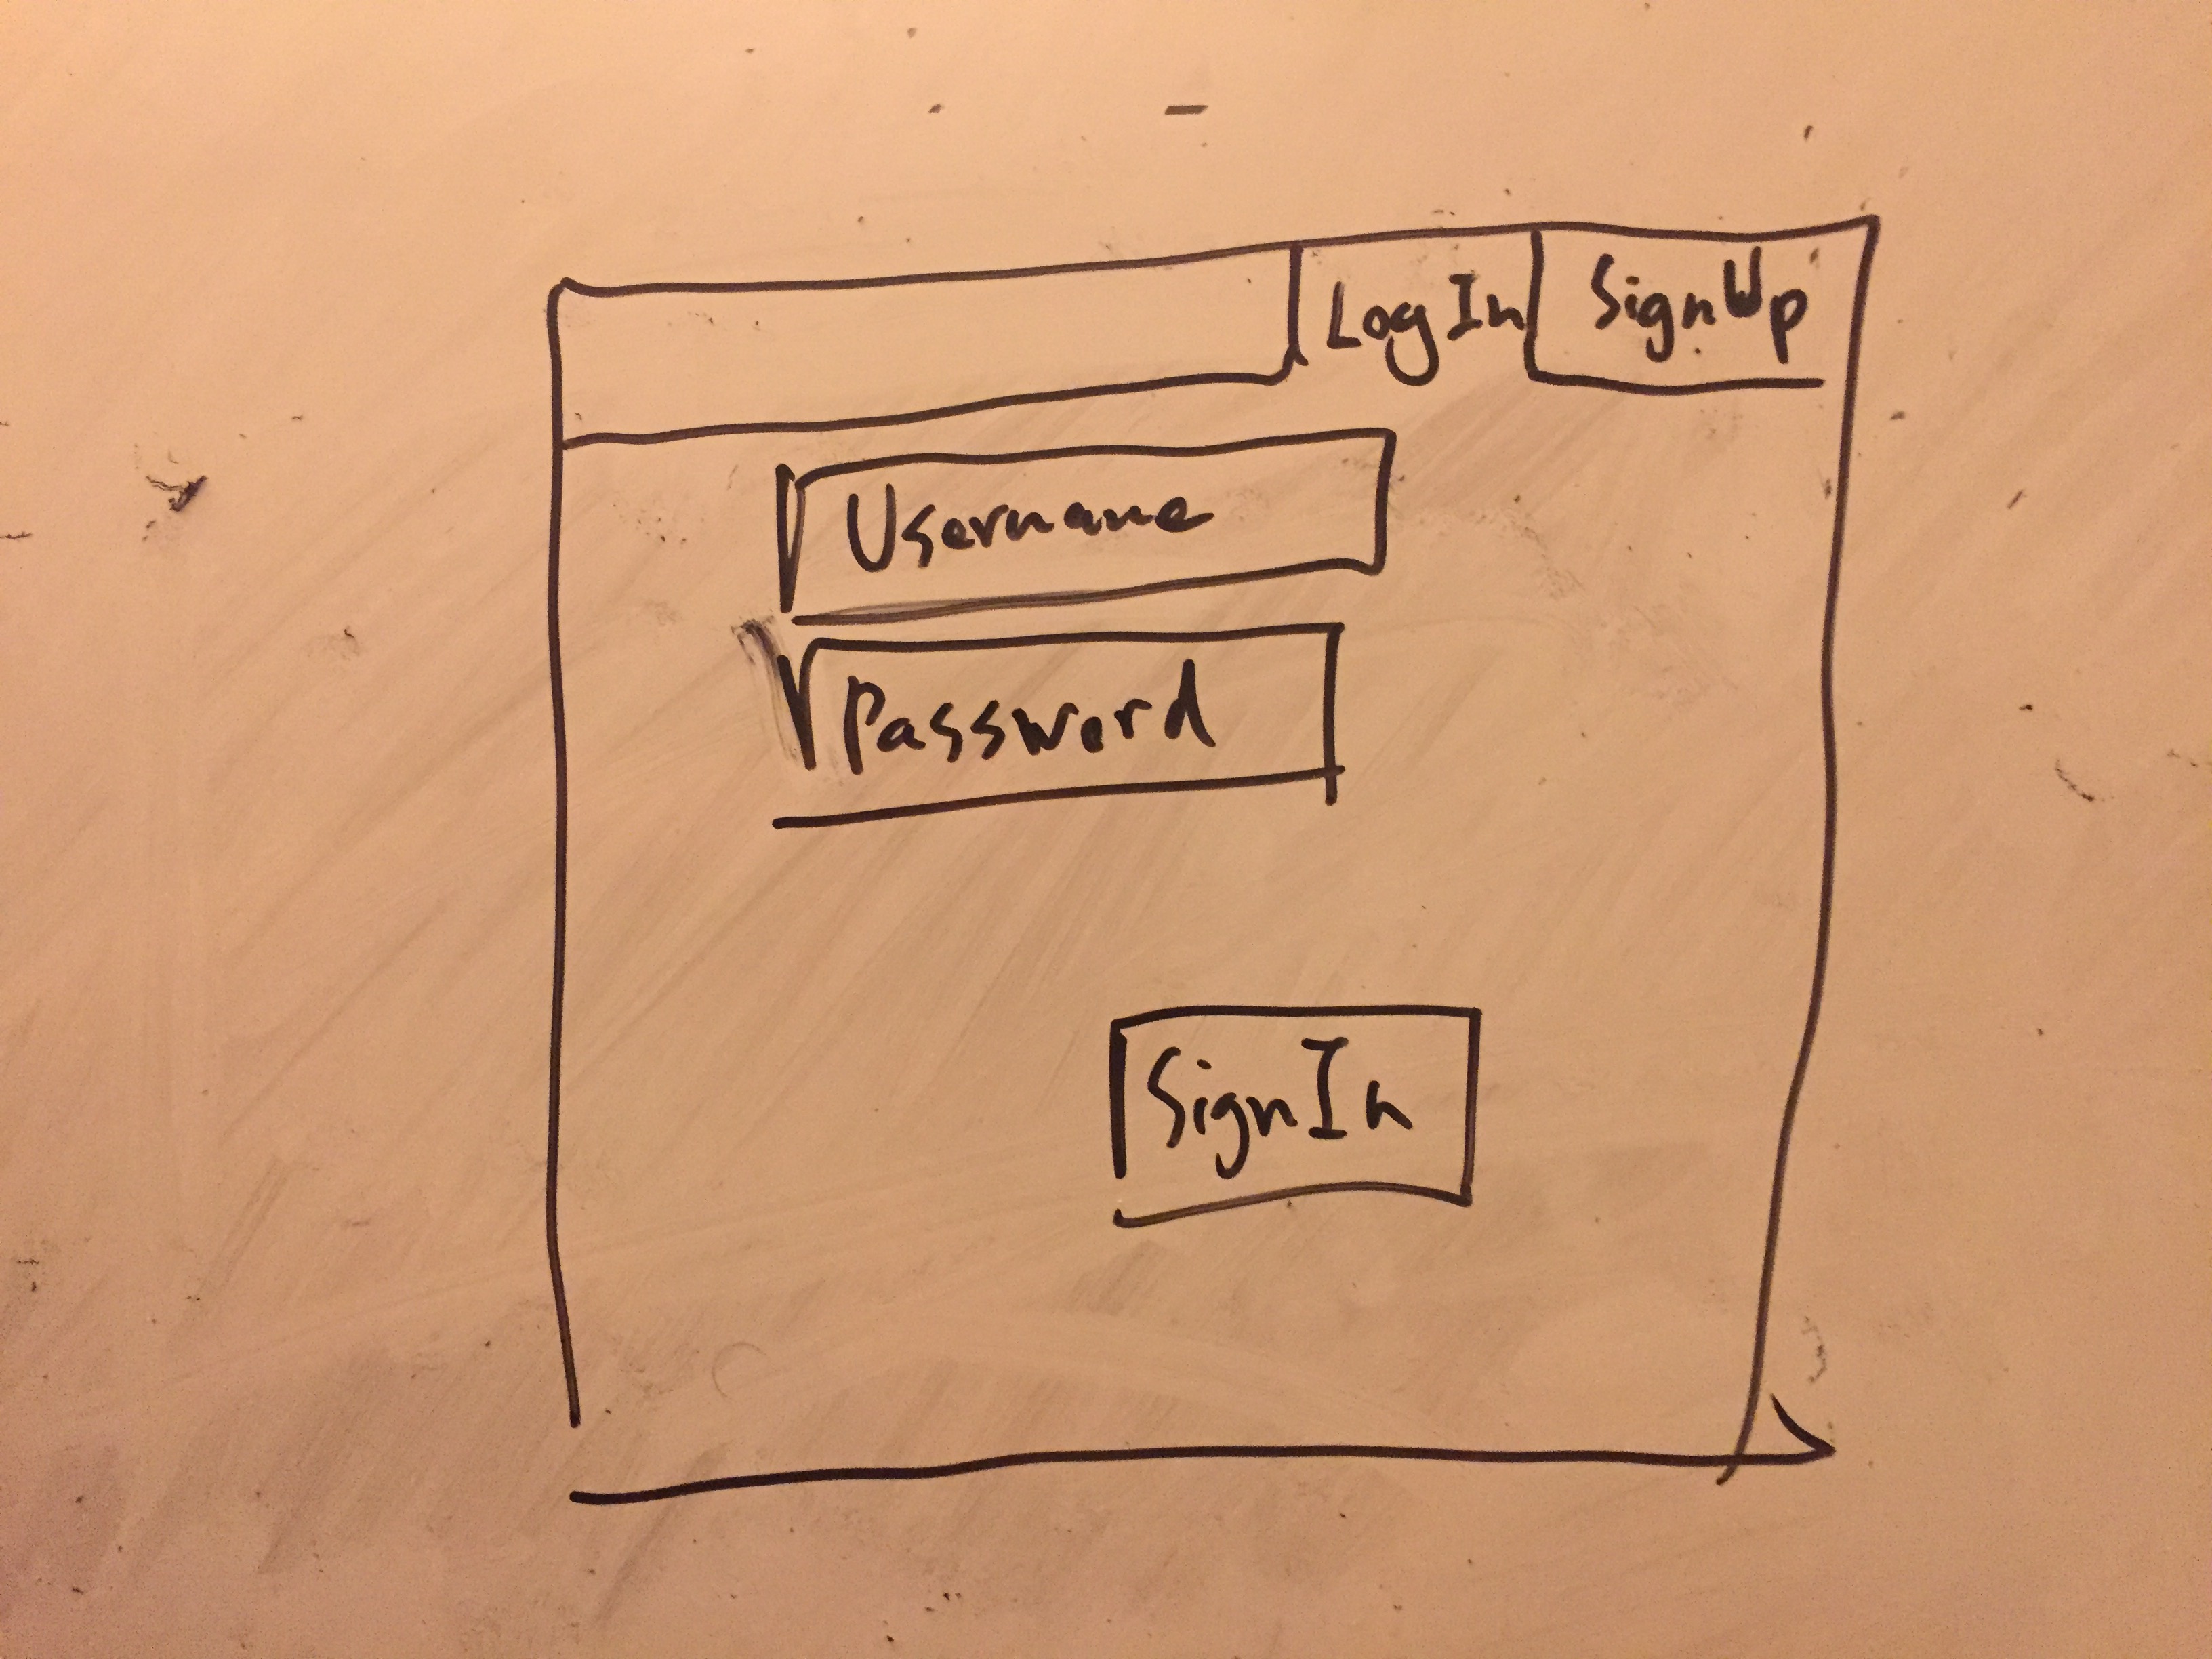 Log In
SignUp
Username
Password
SignIn